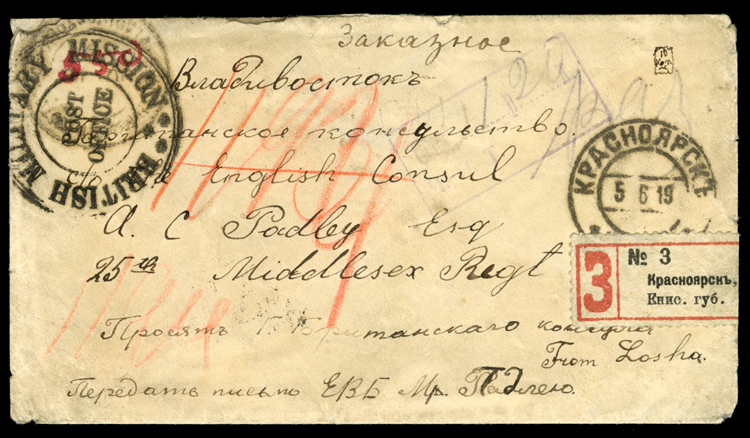 Заказное
Владивостокъ
Британское консульство.
c/o The English Consul
A. C. Padley Esq
25th Middlesex Regt
Просятъ Г. Британскаго консула
From Losha.
Передать письмо ЕВБ Мр. Падлею.
BRITISH MILITARY MISSION
POST OFFICE
КРАСНОЯРСКЪ
5 6 19
3
№ 3
Красноярскъ,
Енис. губ.